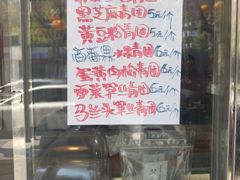 黑芝麻青团5元/个
黄豆粉青团5元/个
青团6元/个
蛋黄肉松青团6元/个
荠菜笋丝青团6元/个
马兰头笋丝青团6元/个